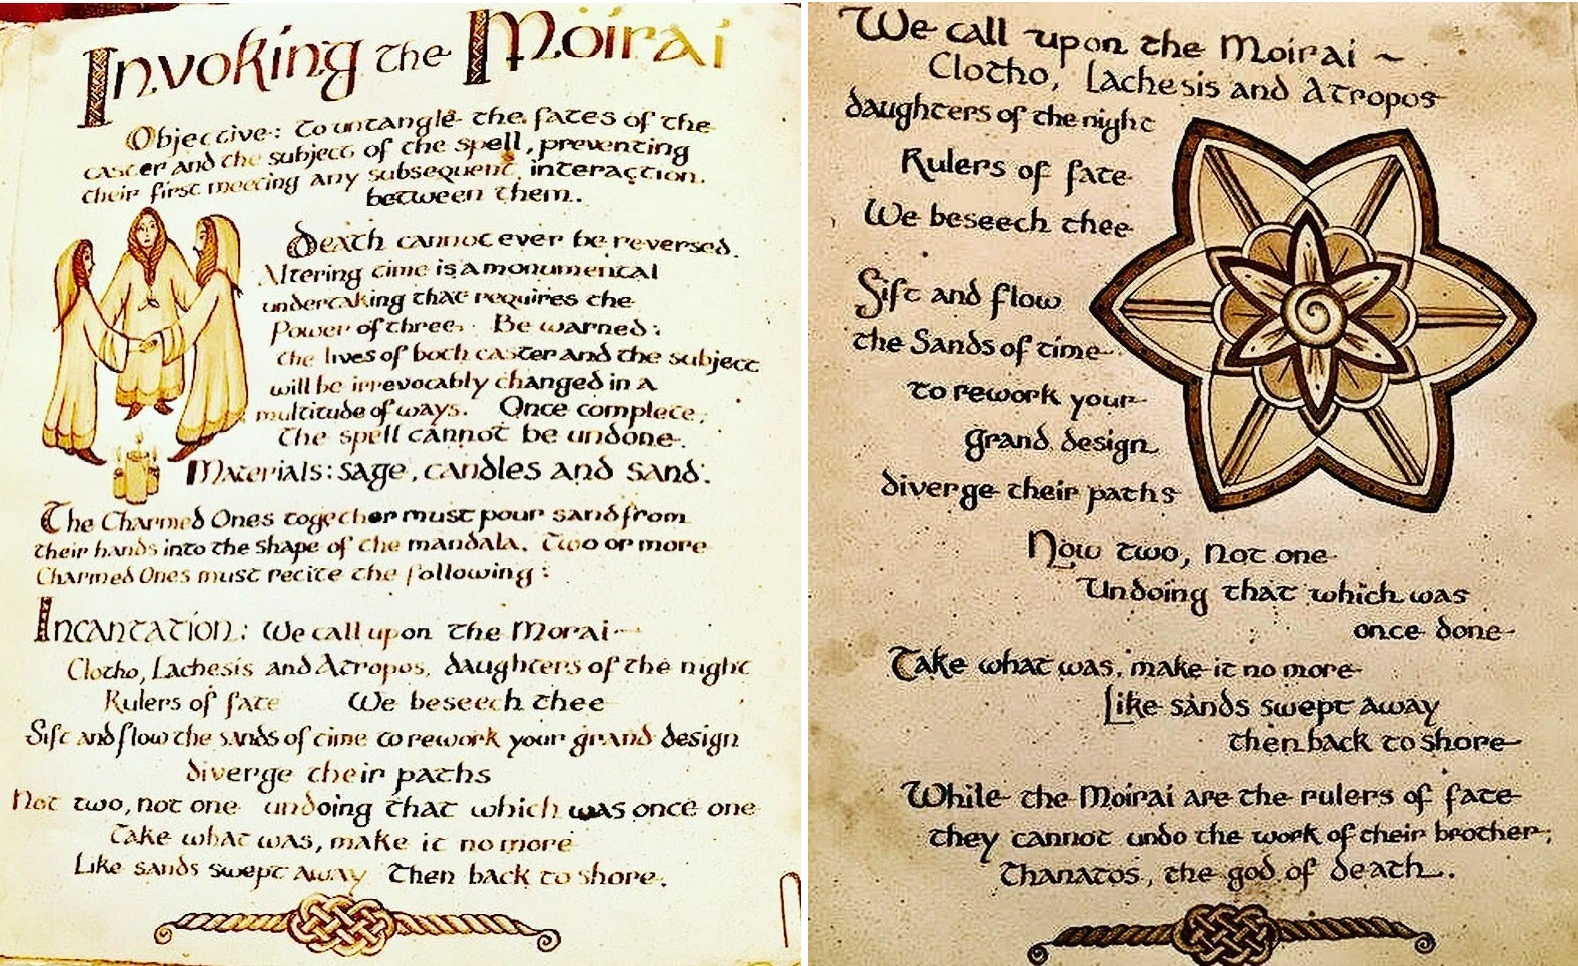 Invoking the Moirai
Objective: to untangle the fates of the
caster and the subject of the spell, preventing
their first meeting any subsequent interaction.
between them.
Death cannot ever be reversed.
Altering time is a monumental
undertaking that requires the
Power of three. Be warned:
the lives of both caster and the subject
will be irrevocably changed in a
multitude of ways. Once complete,
the spell cannot be undone.
Materials: sage, candles and sand.
The Charmed Ones together must pour sand from
their hands into the shape of the mandala. Two or more
Charmed Ones must recite the following:
Incantation: We call upon the Morai~
Clotho, Lachesis and Atropos, daughters of the night
Rulers of fate We beseech thee
Sift and flow the sands of time to rework your grand design
diverge their paths
Not two, not one undoing that which was once one
Take what was, make it no more
Like sands swept away Then back to shore.
We call upon the Moirai ~
Clotho, Lachesis and Atropos
daughters of the night
Rulers of fate
We beseech thee
Sift and flow
the Sands of time
to rework your
grand design
diverge their paths
Now two, Not one
Undoing that which was
once done
Take what was, make it no more
Like sands swept away
then back to shore
While the Moirai are the rulers of fate
they cannot undo the work of their brother,
Thanatos, the god of death.